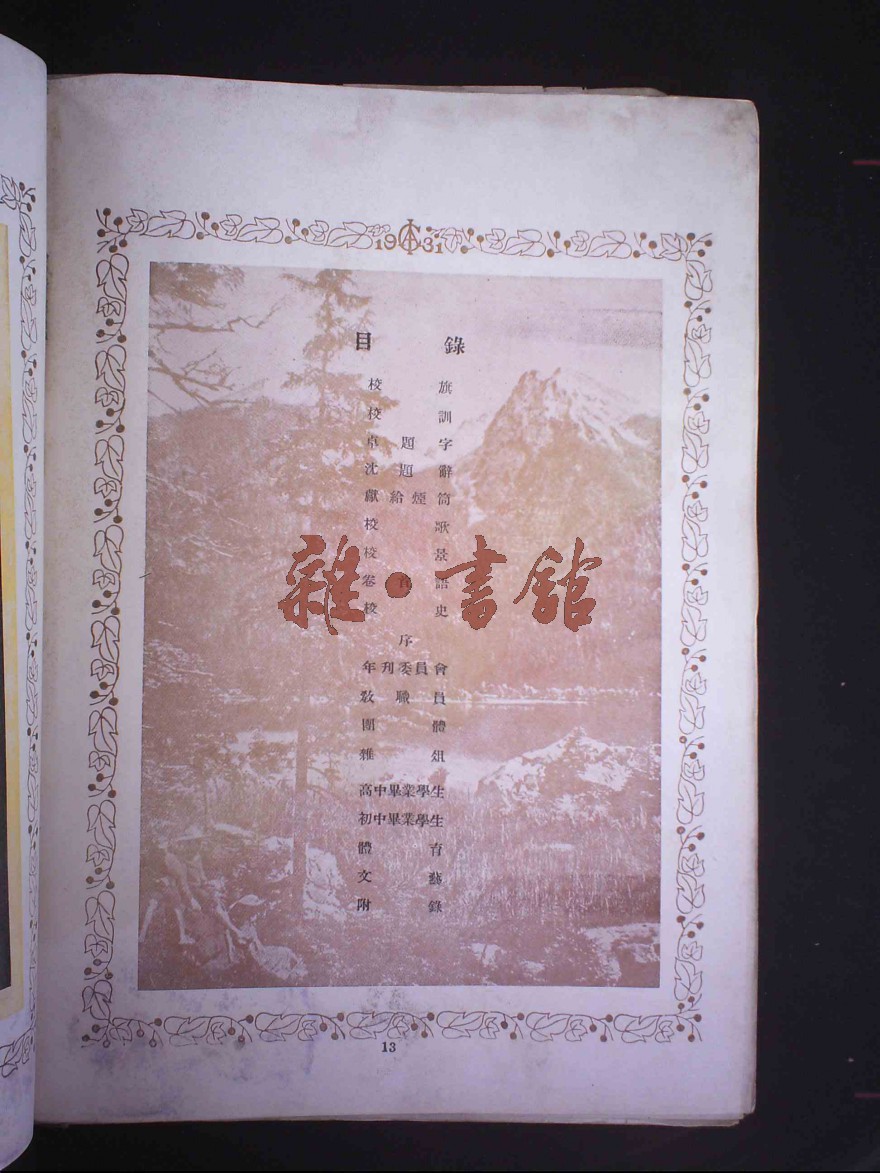 1931
目錄
校旗
校訓
卓題字
沈題辭
獻給煙筒
校歌
校景
卷首語
校史
序
年刊委員會
教職員
團體
雜俎
高中畢業學生
初中畢業學生
體育
文藝
附錄
雜·書館
13